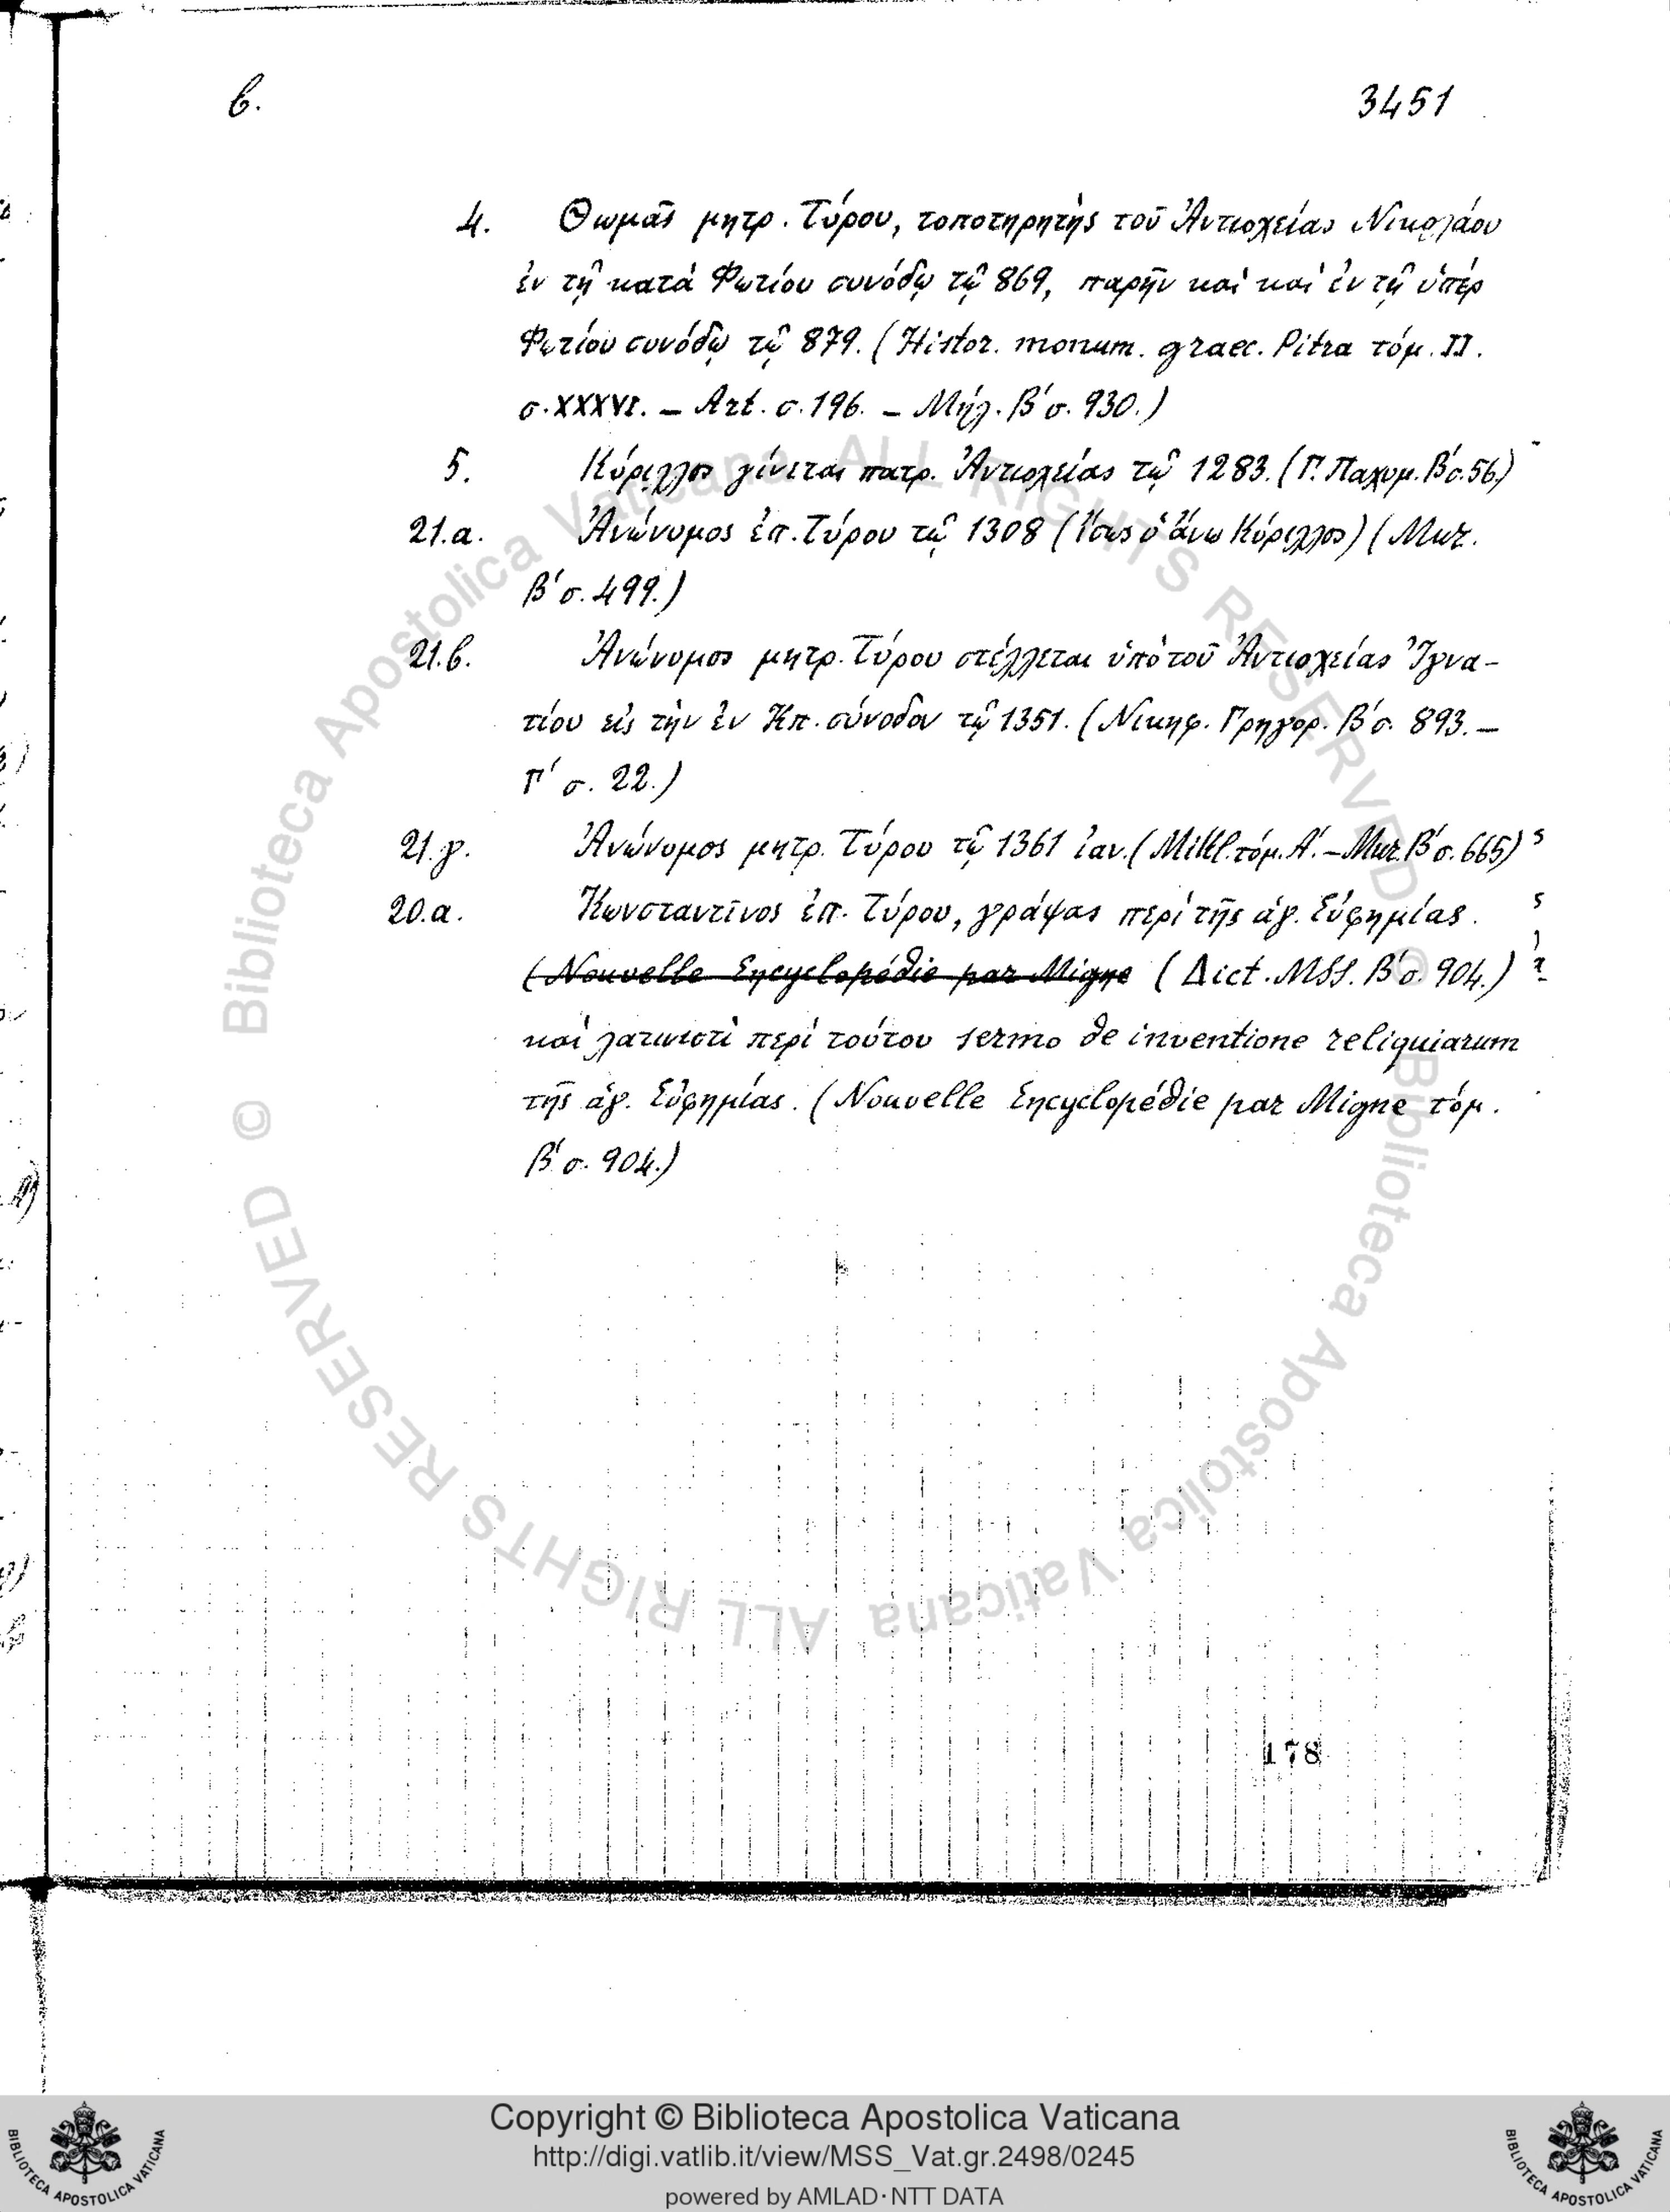 6. 3451
4. Θωμᾶς μητρ. Τύρου, τοποτηρητὴς τοῦ Ἀντιοχείας Νικολάου
ἐν τῇ κατὰ Φωτίου συνόδῳ τῷ 869, παρῆν καὶ καὶ ἐν τῇ ὑπὲρ
Φωτίου συνόδῳ τῷ 879. (Histor. monum. graec. Pitra τόμ. II.
σ. XXXVI. – Art. σ. 196. – Μήλ. Β΄ σ. 930.)
5. Κύριλλος γίνεται πατρ. Ἀντιοχείας τῷ 1283. (Γ. Παχυμ. Β΄ σ. 56.)
21.α. Ἀνώνυμος ἐπ. Τύρου τῷ 1308 (ἴσως ὁ ἄνω Κύριλλος) (Μυζ.
Β΄ σ. 499.)
21.β. Ἀνώνυμος μητρ. Τύρου στέλλεται ὑπὸ τοῦ Ἀντιοχείας Ἰγνα-
τίου εἰς τὴν ἐν Κπ. σύνοδον τῷ 1351. (Νικηφ. Γρηγορ. Β΄ σ. 893. –
Γ΄ σ. 22.)
21.γ. Ἀνώνυμος μητρ. Τύρου τῷ 1361 ἰαν. (Mikl. τόμ. Α΄. – Μυζ. Β΄ σ. 665)
20.α. Κωνσταντῖνος ἐπ. Τύρου, γράψας περὶ τῆς ἁγ. Εὐφημίας.
(Nouvelle Encyclopédie par Migne (Dict. MSS. Β΄ σ. 904.)
καὶ λατινιστὶ περὶ τούτου sermo de inventione reliquiarum
τῆς ἁγ. Εὐφημίας. (Nouvelle Encyclopédie par Migne τόμ.
Β΄ σ. 904.)
178
© Biblioteca Apostolica Vaticana ALL RIGHTS RESERVED
© Biblioteca Apostolica Vaticana ALL RIGHTS RESERVED
Copyright © Biblioteca Apostolica Vaticana
http://digi.vatlib.it/view/MSS_Vat.gr.2498/0245
powered by AMLAD·NTT DATA
BIBLIOTECA APOSTOLICA VATICANA
BIBLIOTECA APOSTOLICA VATICANA